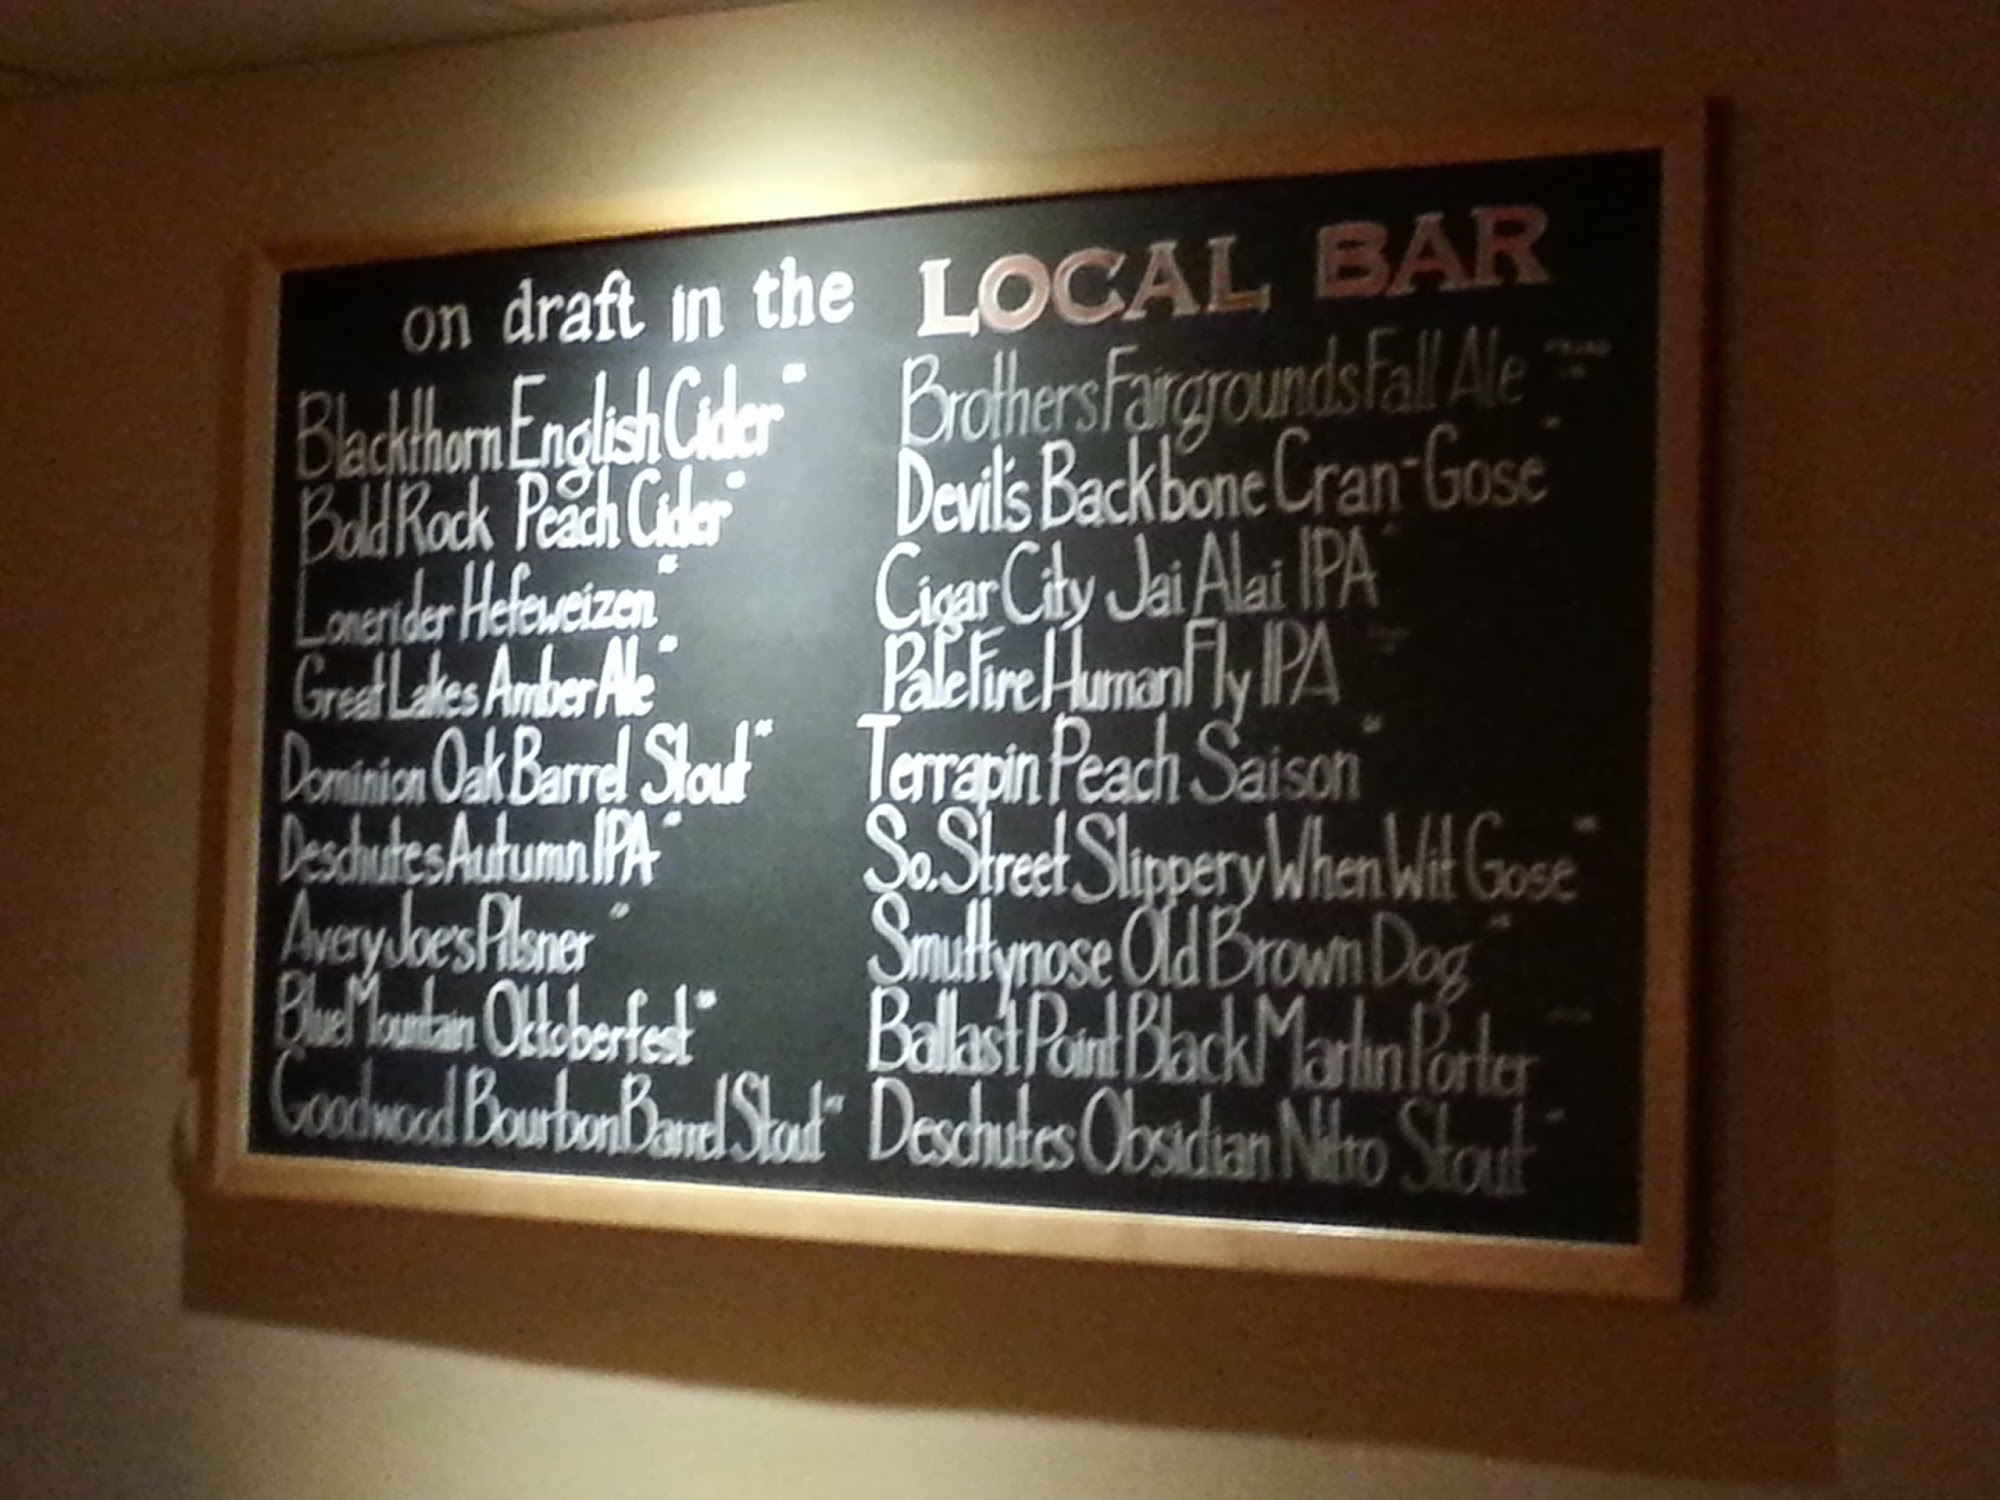 on draft in the LOCAL BAR
Blackthorn English Cider
Bold Rock Peach Cider
Lonerider Hefeweizen
Great Lakes Amber Ale
Dominion Oak Barrel Stout
Deschutes Autumn IPA
Avery Joe's Pilsner
Blue Mountain Oktoberfest
Goodwood Bourbon Barrel Stout
Brothers Fairgrounds Fall Ale
Devil's Backbone Cran-Gose
Cigar City Jai Alai IPA
Pale Fire Human Fly IPA
Terrapin Peach Saison
So. Street Slippery When Wit Gose
Smuttynose Old Brown Dog
Ballast Point Black Marlin Porter
Deschutes Obsidian Nitro Stout